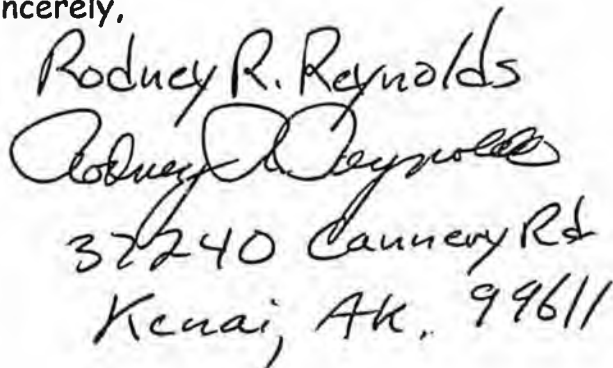 ncerely,
Rodney R. Reynolds
Rodney R. Reynolds
37240 Cannery Rd
Kenai, AK. 99611